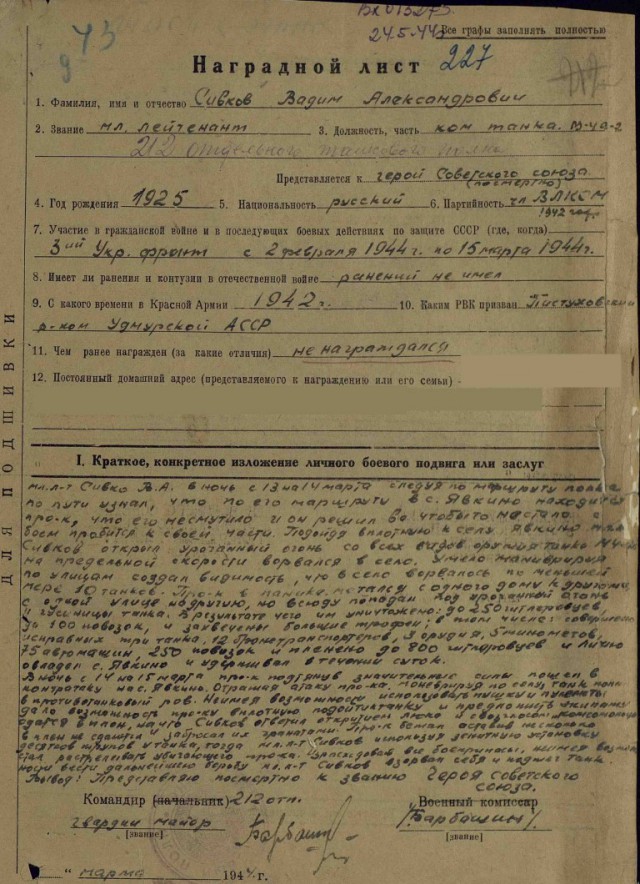 73
9
Вх 013273
24.5.44г
Все графы заполнять полностью
Наградной лист 227
1. Фамилия, имя и отчество Сивков Вадим Александрович
2. Звание мл. лейтенант 3. Должность, часть ком танка
212 отдельного танкового полка
Представляется к герой Советского союза
(посмертно)
4. Год рождения 1925 5. Национальность русский 6. Партийность чл ВЛКСМ
1942 году
7. Участие в гражданской войне и в последующих боевых действиях по защите СССР (где, когда)
3ий Укр. фронт с 2 февраля 1944 г. по 15 марта 1944 г.
8. Имеет ли ранения и контузии в отечественной войне ранений не имел
9. С какого времени в Красной Армии 1942 г. 10. Каким РВК призван
р-ком Удмурской АССР
11. Чем ранее награжден (за какие отличия) не награждался
12. Постоянный домашний адрес (представляемого к награждению или его семьи)
ДЛЯ ПОДШИВКИ
I. Краткое, конкретное изложение личного боевого подвига или заслуг
мл. л-т Сивко В.А. в ночь с 13 на 14 марта следуя по маршруту полка
по пути узнал, что по его маршруту в с. Явкино находится
пр-к, что его несмутило и он решил во чтобыто нестало с
боем пробится к своей части. Подойдя вплотную к селу Явкино мл. л-т
Сивков открыл ураганный огонь со всех видов оружия танка
на предельной скорости ворвался в село. Умело маневрируя
по улицам создал видимость, что в село ворвалось по меньшей
мере 10 танков. Пр-к в панике метался с одного дому к другому,
с одной улице на другую, но всюду попадал под ураганный огонь
и гусеницы танка. В результате чего им уничтожено: до 250 гитлеровцев,
до 100 повозок, и захвачены большие трофеи; в том числе: совершенно
исправных три танка, 12 бронетранспортеров, 3 орудия, 5 минометов,
75 автомашин, 250 повозок и пленено до 800 гитлеровцев и лично
овладел с. Явкино и удерживал в течении суток.
В ночь с 14 на 15 марта пр-к подтянув значительные силы пошел в
контратаку на с. Явкино. Отражая атаку пр-ка, маневрируя по селу, танк попал
в противотанковый ров. Неимея возможности использовать пушку и пулеметы
дал возможность пр-ку вплотную подойти к танку и предложить экипажу
сдатся в плен, на что Сивков ответил открытием люка и словами: Комсомольцы
в плен не сдаются и забросал их гранатами. Пр-к бежал оставив несколько
десятков трупов у танка, тогда мл. л-т Сивков используя зенитную установку
стал расстреливать убегающего пр-ка. Израсходовав все боеприпасы, неимея возмож-
ности вести дальнейшею борьбу мл. л-т Сивков взорвал себя и поджег танк.
Вывод: Представляю посмертно к званию Героя Советского
союза.
Командир (начальник) 212 отп. Военный комиссар
гвардии майор /Барбашин/
[звание] [звание]
" марта 1944 г.